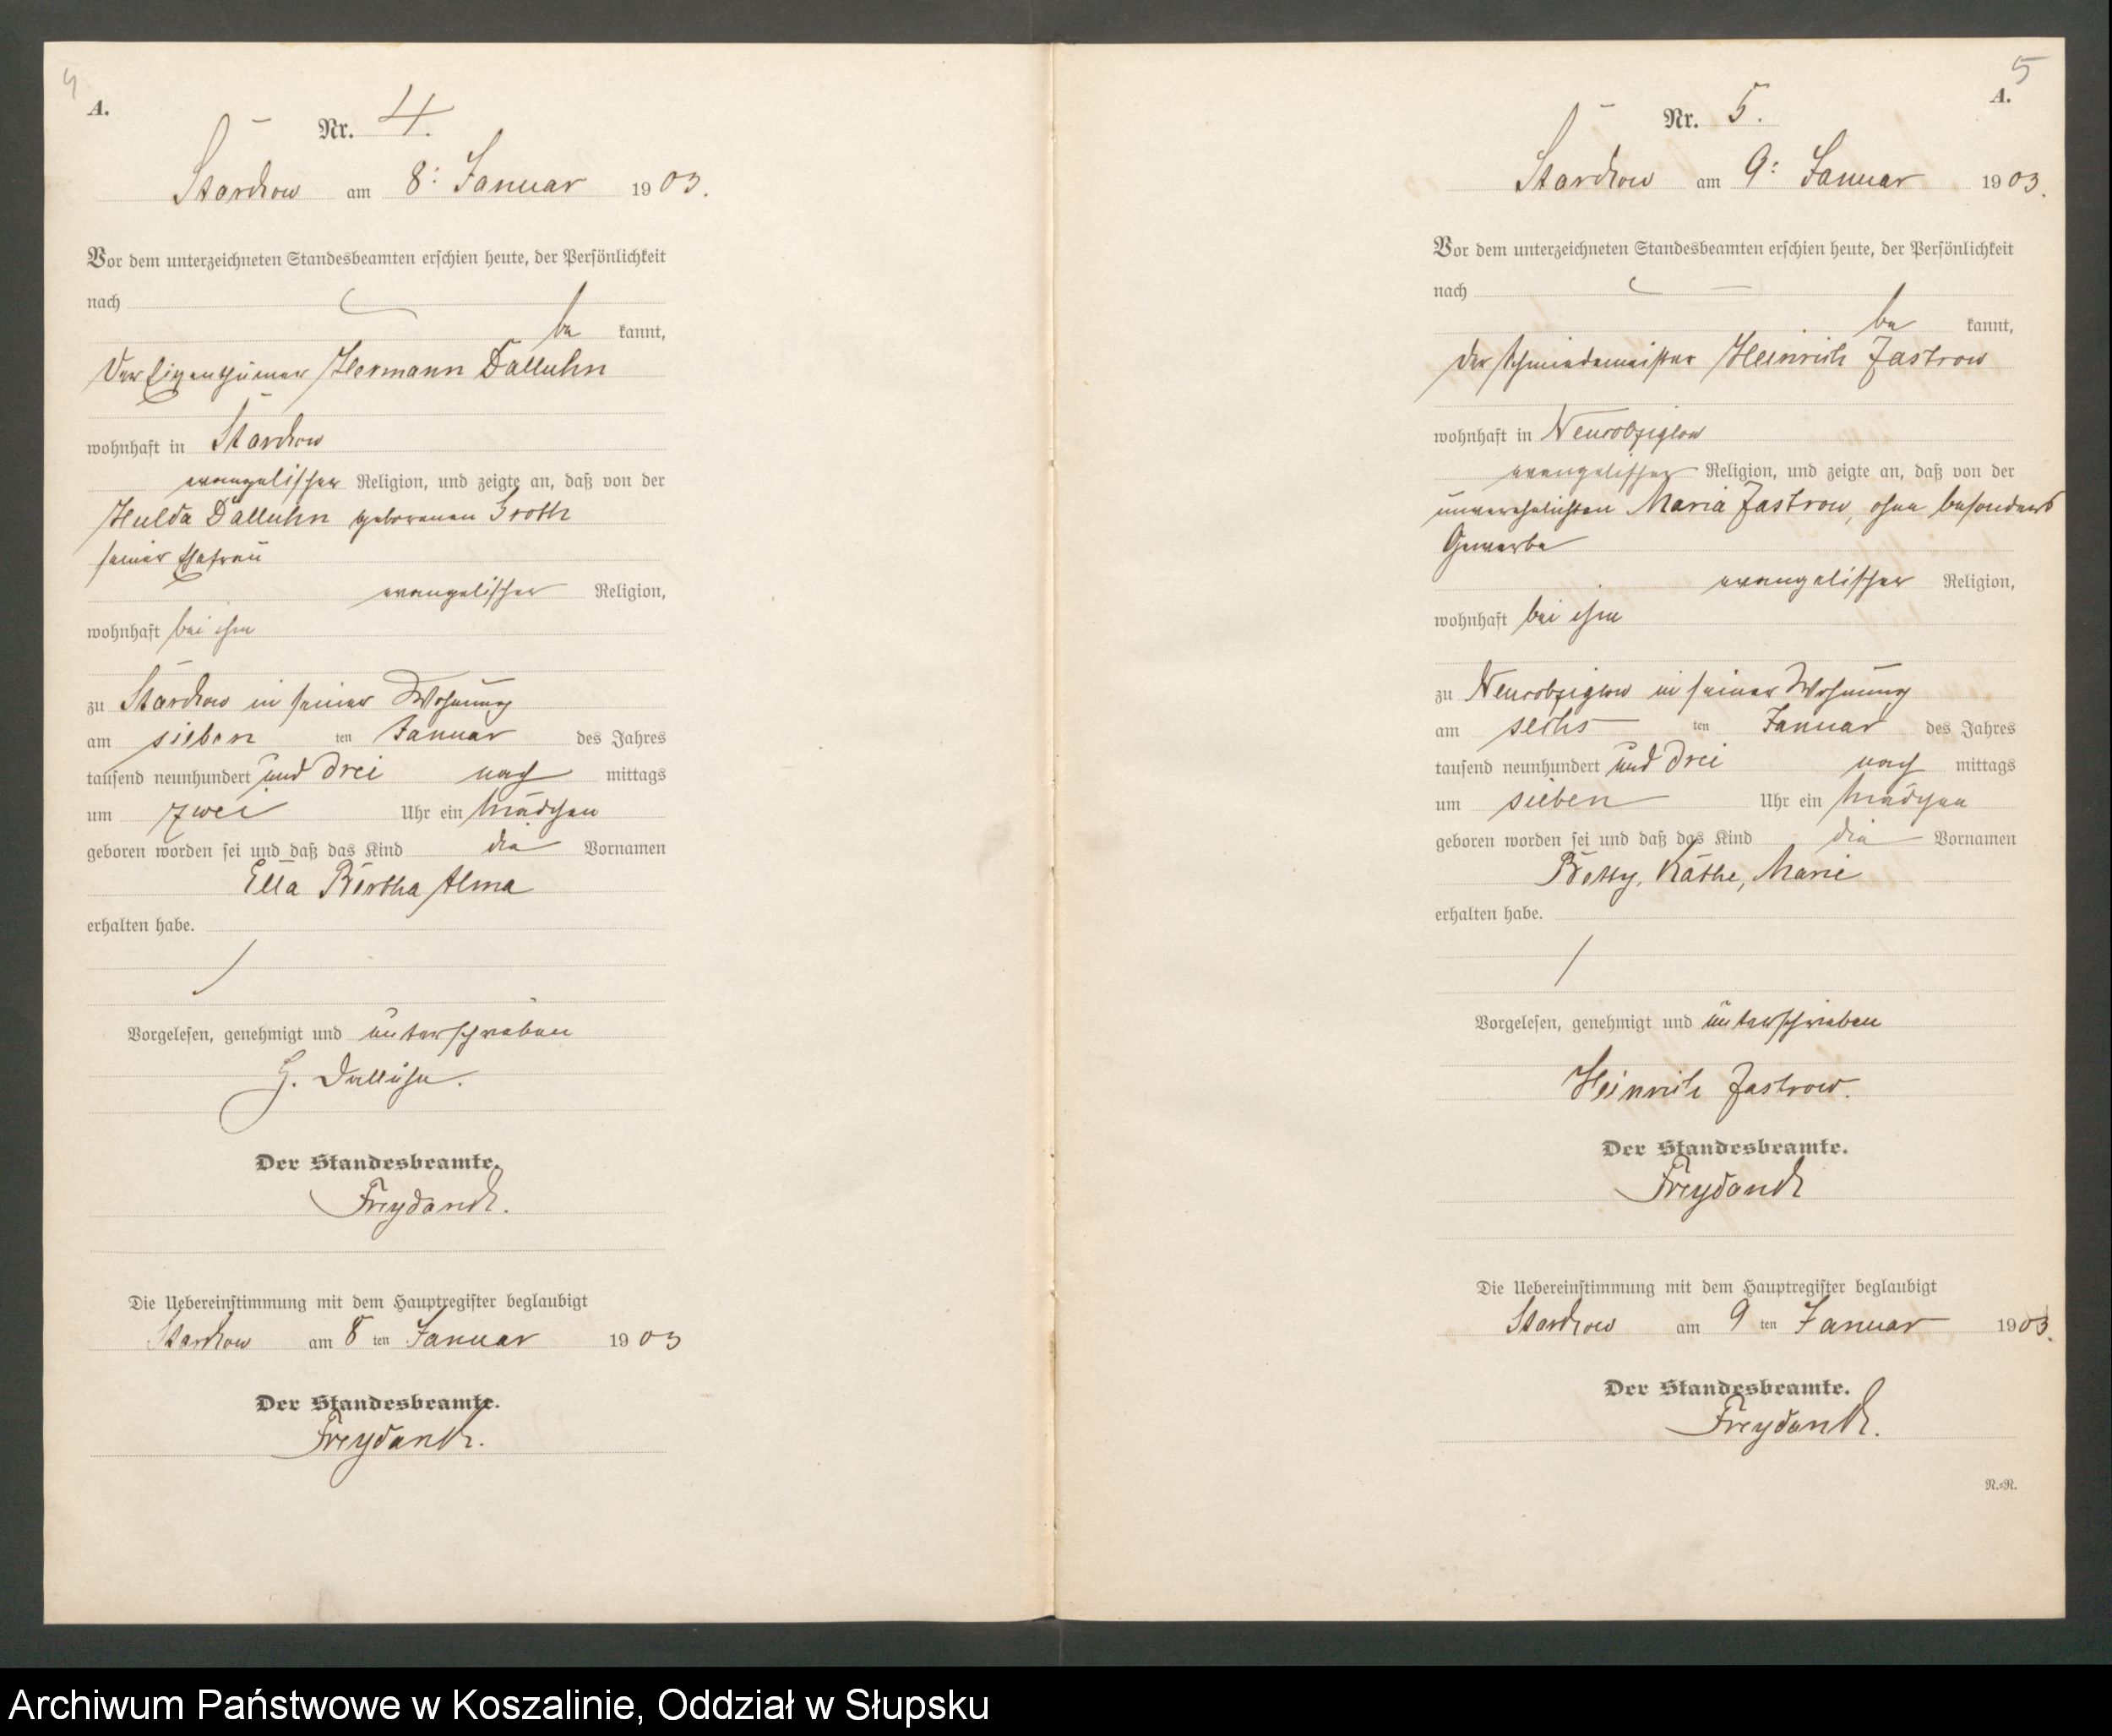 4
A.
Nr. 4.
Starkow am 8: Januar 1903.
Vor dem unterzeichneten Standesbeamten erschien heute, der Persönlichkeit
nach
be kannt,
der Eigenthümer Hermann Dalluhn
wohnhaft in Starkow
evangelischer Religion, und zeigte an, daß von der
Hulda Dalluhn geborenen Groth
seiner Ehefrau
evangelischer Religion,
wohnhaft bei ihm
zu Starkow in seiner Wohnung
am sieben ten Januar des Jahres
tausend neunhundert und drei nach mittags
um zwei Uhr ein Mädchen
geboren worden sei und daß das Kind die Vornamen
Ella Bertha Alma
erhalten habe.
Vorgelesen, genehmigt und unterschrieben
H. Dalluhn.
Der Standesbeamte.
Freydanck.
Die Uebereinstimmung mit dem Hauptregister beglaubigt
Starkow am 8 ten Januar 1903
Der Standesbeamte.
Freydanck.
5
A.
Nr. 5.
Starkow am 9: Januar 1903.
Vor dem unterzeichneten Standesbeamten erschien heute, der Persönlichkeit
nach
be kannt,
der Schmiedemeister Heinrich Jastrow
wohnhaft in Neurobziglow
evangelischer Religion, und zeigte an, daß von der
unverehelichten Maria Jastrow, ohne besonders
Gewerbe
evangelischer Religion,
wohnhaft bei ihm
zu Neurobziglow in seiner Wohnung
am sechs ten Januar des Jahres
tausend neunhundert und drei nach mittags
um sieben Uhr ein Mädchen
geboren worden sei und daß das Kind die Vornamen
Betty, Käthe, Marie
erhalten habe.
Vorgelesen, genehmigt und unterschrieben
Heinrich Jastrow.
Der Standesbeamte.
Freydanck
Die Uebereinstimmung mit dem Hauptregister beglaubigt
Starkow am 9 ten Januar 1903.
Der Standesbeamte.
Freydanck.
N.=N.
Archiwum Państwowe w Koszalinie, Oddział w Słupsku